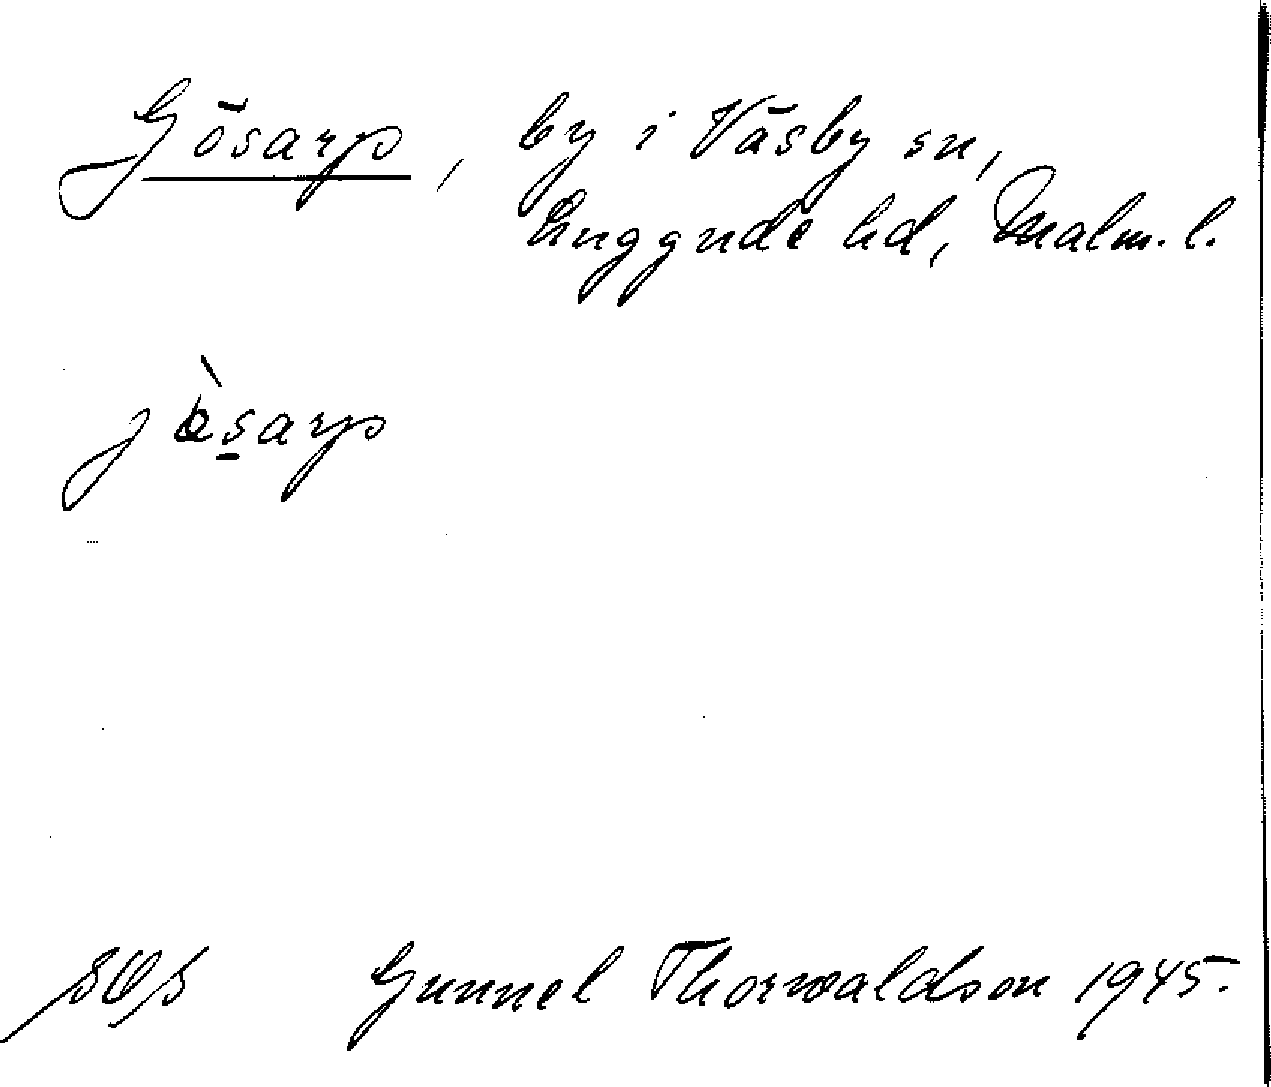 Gösarp, by i Väsby sn,
Luggude hd, Malm. l.
jösarp
Gunnel Thorwaldson 1945.